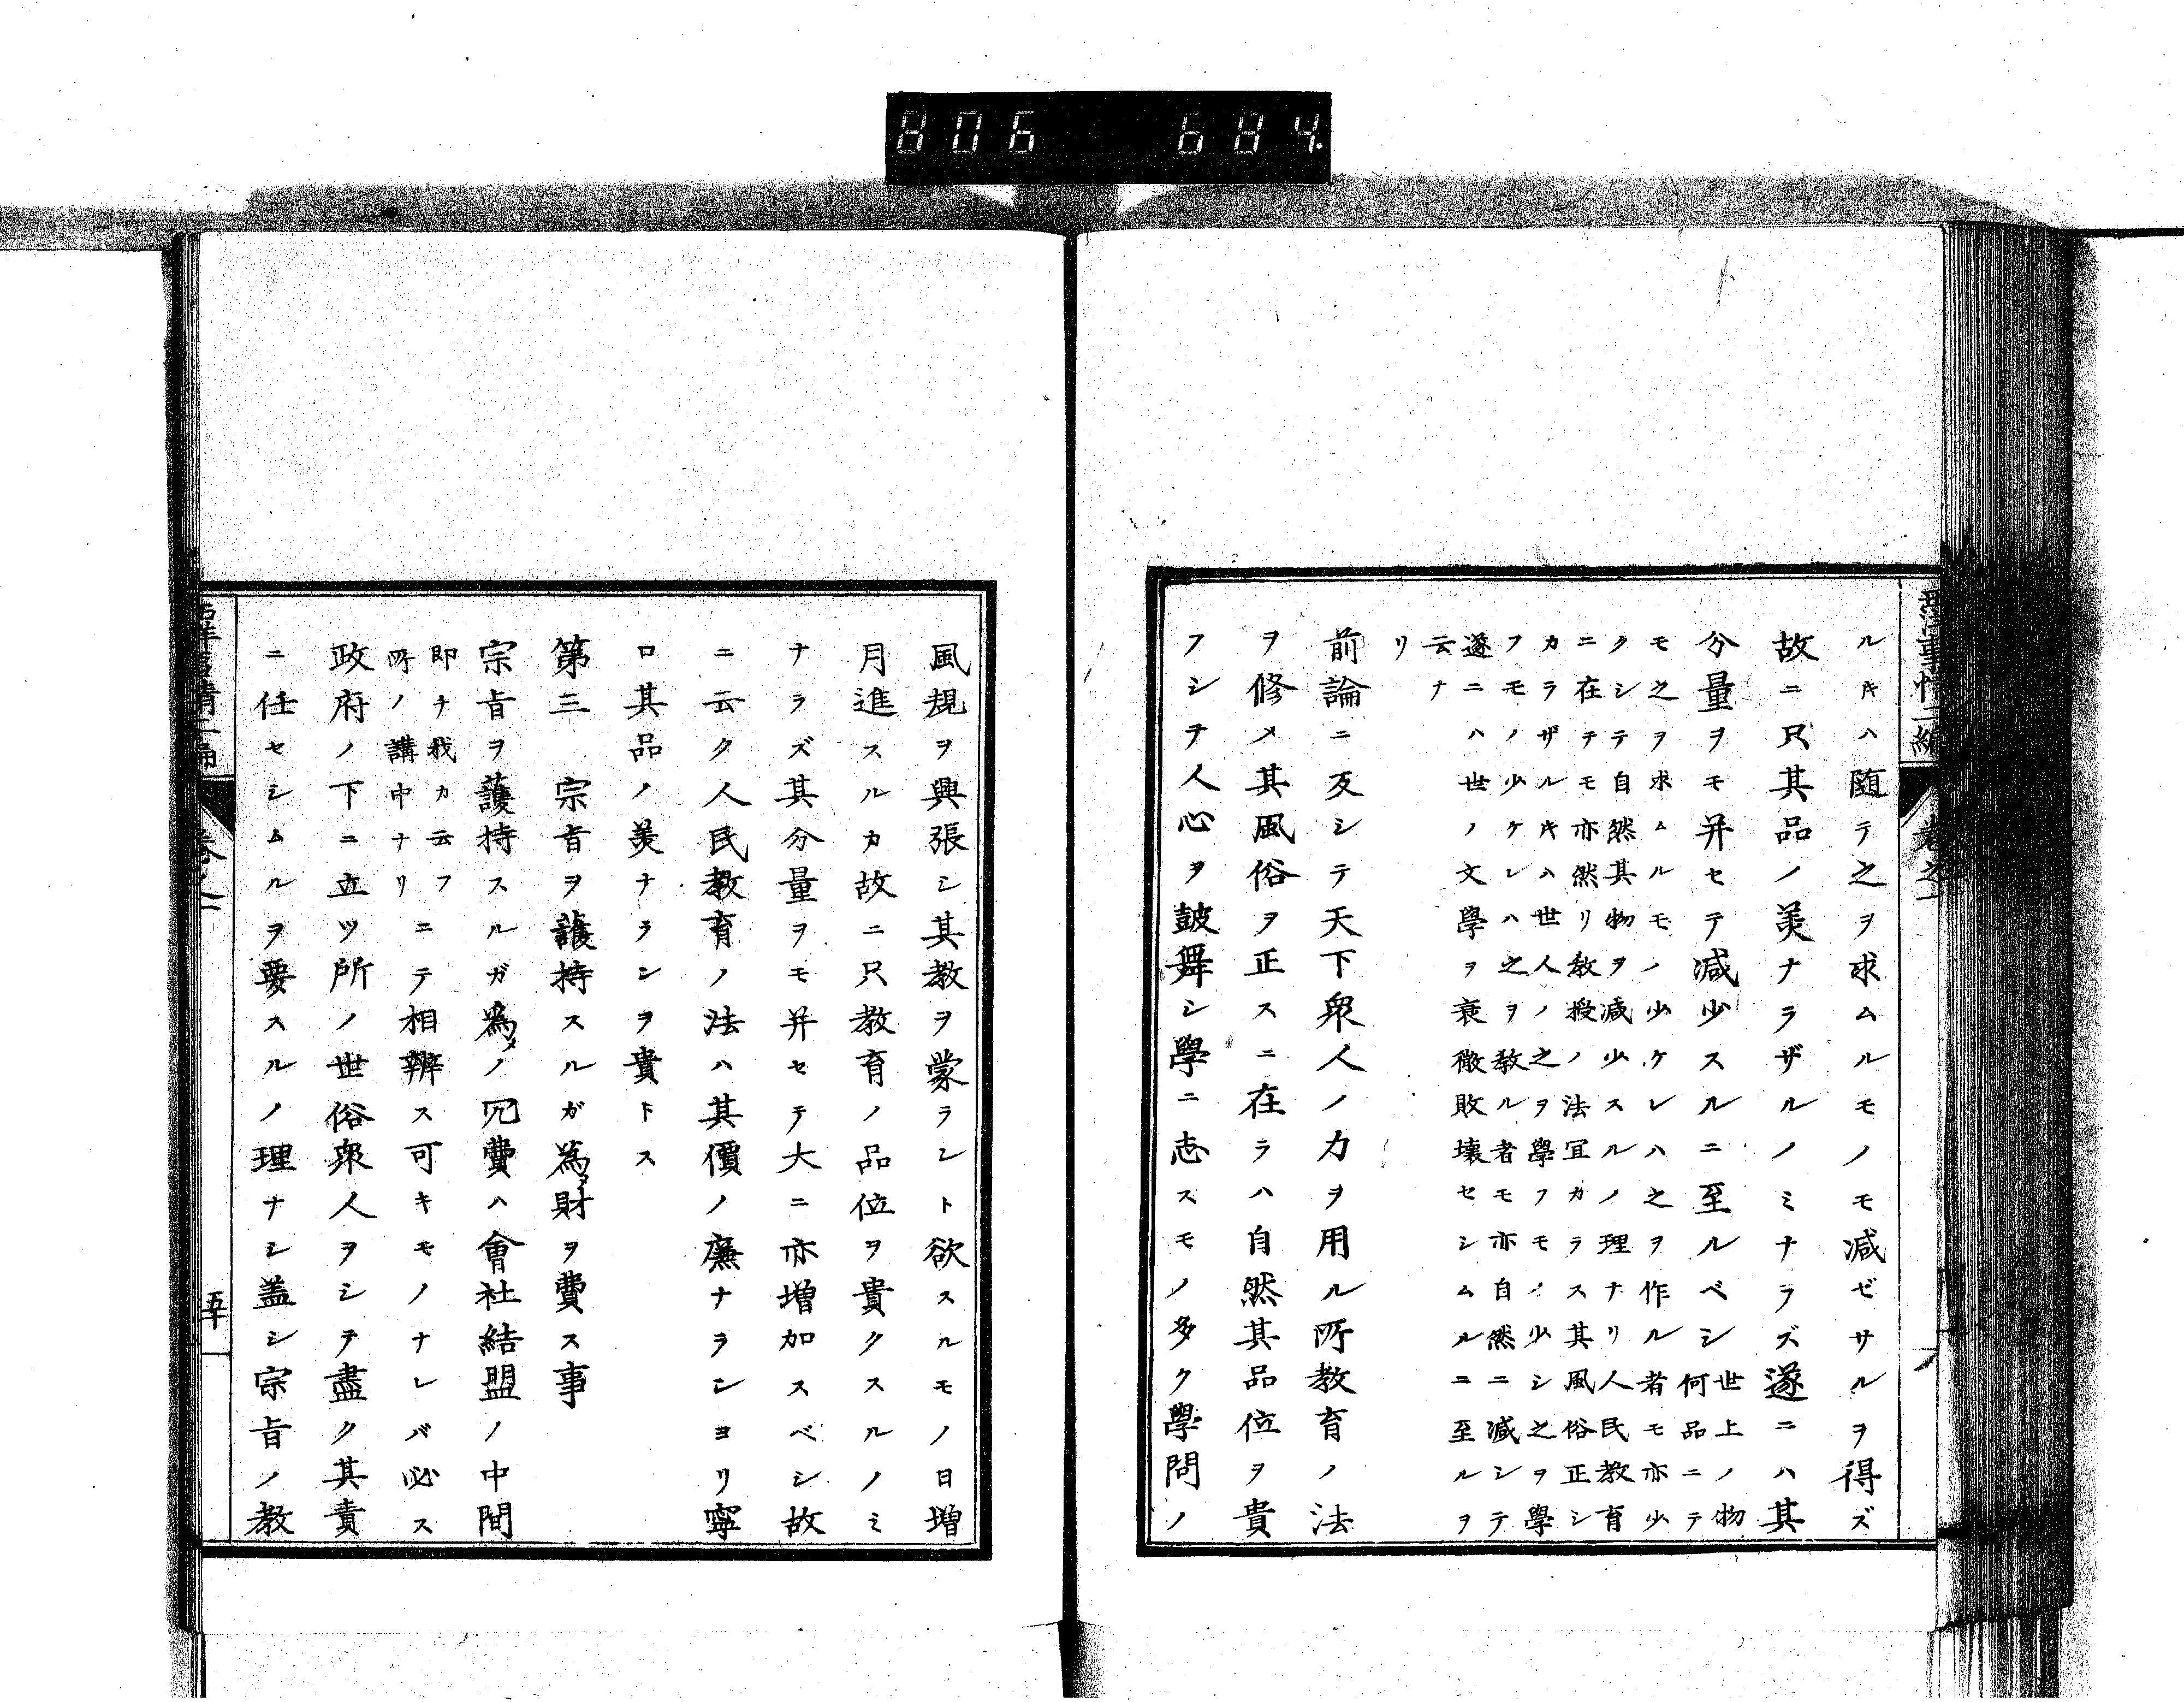 806 684
西洋事情二編 卷之一
ルキハ随テ之ヲ求ムルモノモ減ゼサルヲ得ズ
故ニ只其品ノ美ナラザルノミナラズ遂ニハ其
分量ヲモ并セテ減少スルニ至ルベシ
世上ノ物
何品ニテ
モ之ヲ求ムルモノ少ケレハ之ヲ作ル者モ亦少
クシテ自然其物ヲ減少スルノ理ナリ人民教育
ニ在テモ亦然リ教授ノ法冝カラス其風俗正シ
カラザルキハ世人ノ之ヲ學フモノ少シ之ヲ學
フモノ少ケレハ之ヲ教ル者モ亦自然ニ減シテ
遂ニハ世ノ文學ヲ衰微敗壊セシムルニ至ルヲ
云ナ
リ
前論ニ反シテ天下衆人ノ力ヲ用ル所教育ノ法
ヲ修メ其風俗ヲ正スニ在ラハ自然其品位ヲ貴
フシテ人心ヲ鼓舞シ學ニ志スモノ多ク學問ノ
風規ヲ興張シ其教ヲ蒙ラント欲スルモノ日増
月進スルカ故ニ只教育ノ品位ヲ貴クスルノミ
ナラズ其分量ヲモ并セテ大ニ亦増加スベシ故
ニ云ク人民教育ノ法ハ其價ノ廉ナランヨリ寧
ロ其品ノ美ナランヲ貴トス
第三 宗旨ヲ護持スルガ為メ財ヲ費ス事
宗旨ヲ護持スルガ為メノ冗費ハ會社結盟ノ中間
即チ我カ云フ
所ノ講中ナリ
ニテ相辨ス可キモノナレバ必ス
政府ノ下ニ立ツ所ノ世俗衆人ヲシテ盡ク其責
ニ任セシムルヲ要スルノ理ナシ盖シ宗旨ノ教
西洋事情二編 卷之一 五十一